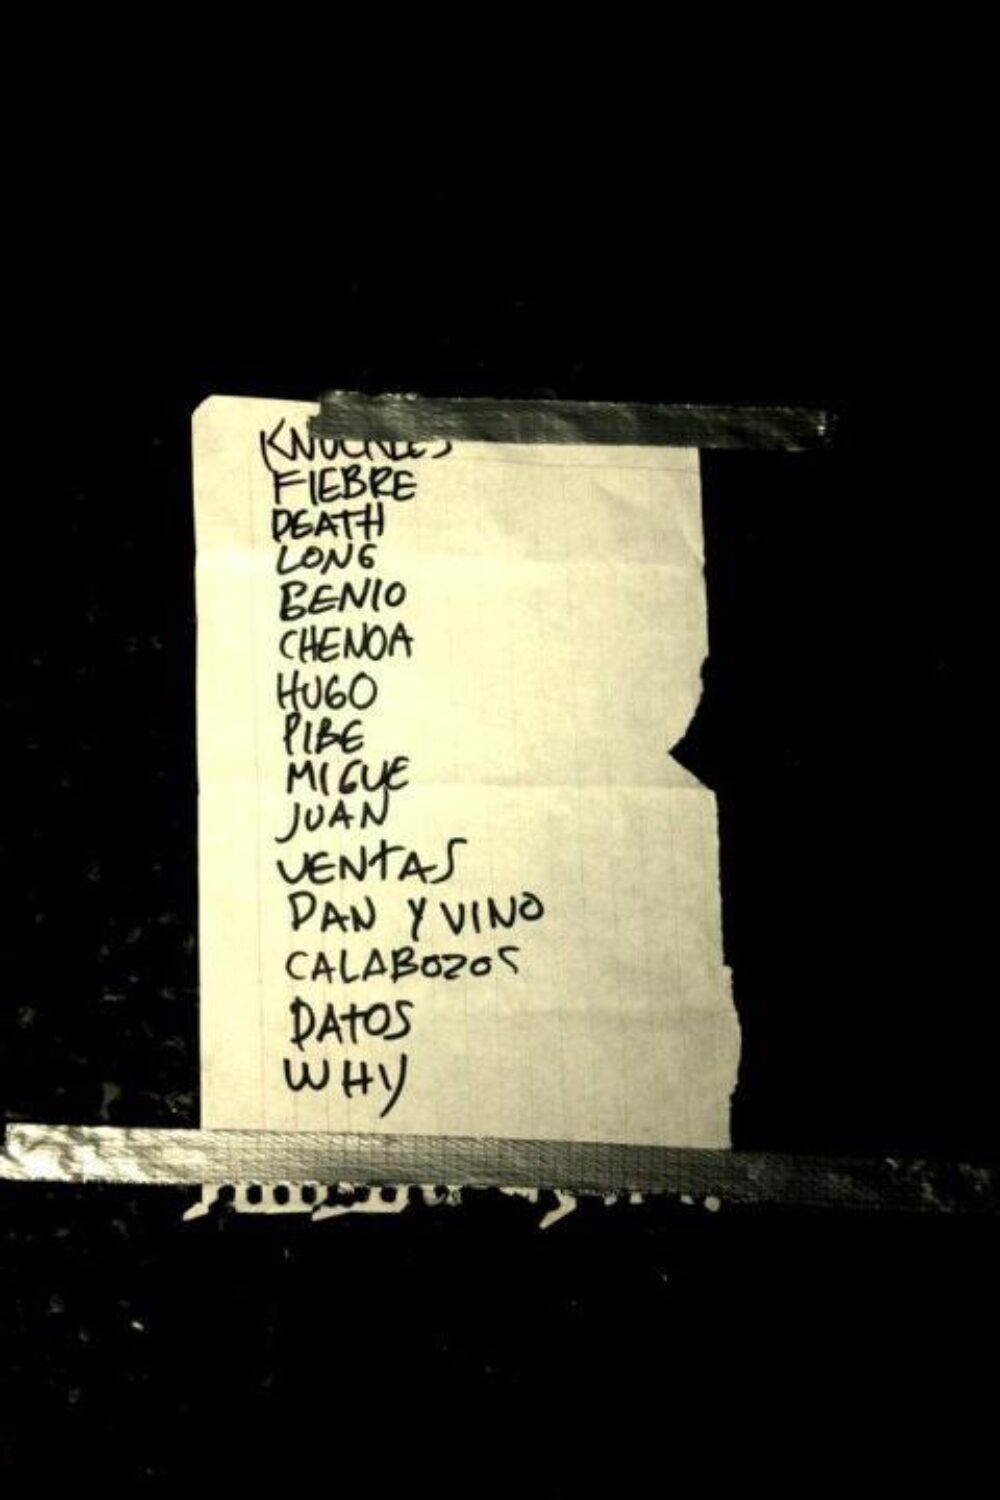 KNUCKLES
FIEBRE
DEATH
LONG
BENIO
CHENOA
HUGO
PIBE
MIGUE
JUAN
VENTAS
PAN Y VINO
CALABOZOS
DATOS
WHY